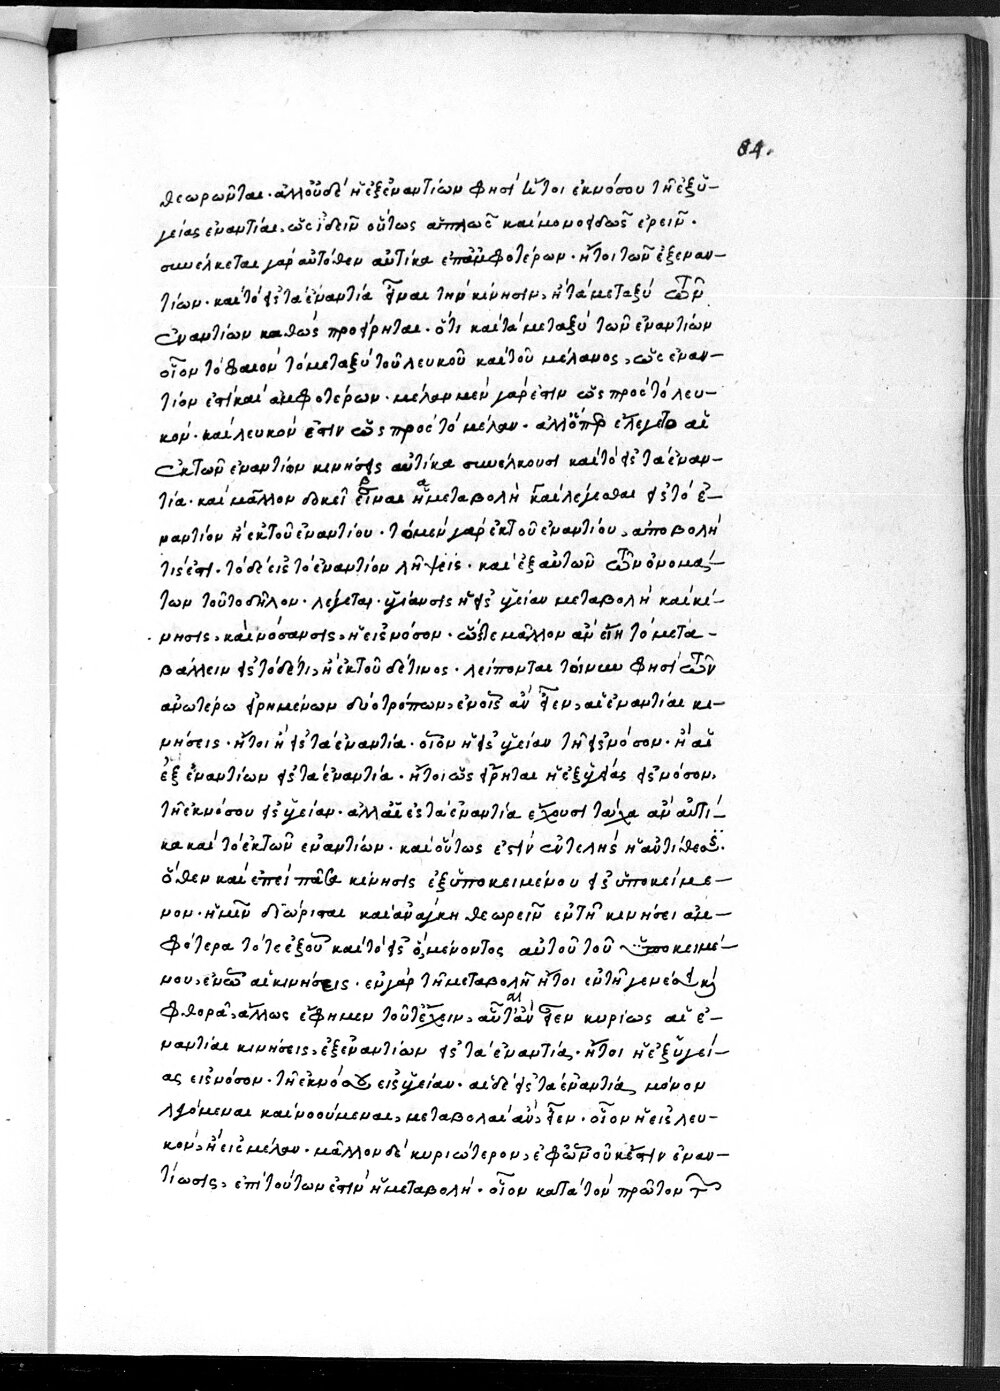 84.
θεωρῶνται. ἀλλ' οὐδὲ ἡ ἐξ ἐναντίων φησὶ ἤτοι ἐκ νόσου τῇ ἐξ ὑ-
γείας ἐναντία, ὡς ἰδεῖν οὕτως ἁπλῶς καὶ μονοειδῶς ἐρεῖν.
συνέλκεται γὰρ αὐτόθεν αὐτίκα ἐπ' ἀμφοτέρων. ἤτοι τῶν ἐξ ἐναν-
τίων. καὶ τὸ εἰς τὰ ἐναντία εἶναι τὴν κίνησιν, ἢ τὰ μεταξὺ τῶν
ἐναντίων καθὼς προείρηται. ὅτι καὶ τὰ μεταξὺ τῶν ἐναντίων
οἷον τὸ φαιὸν τὸ μεταξὺ τοῦ λευκοῦ καὶ τοῦ μέλανος, ὡς ἐναν-
τίον ἐστὶ καὶ ἀμφοτέρων. μέλαν μὲν γάρ ἐστιν ὡς πρὸς τὸ λευ-
κόν. καὶ λευκόν ἐστιν ὡς πρὸς τὸ μέλαν. ἀλλ' ὅπερ ἐλέγετο αἱ
ἐκ τῶν ἐναντίων κινήσεις αὐτίκα συνέλκουσι καὶ τὸ εἰς τὰ ἐναν-
τία. καὶ μᾶλλον δοκεῖ εἶναι ἡ μεταβολὴ καὶ λέγεσθαι εἰς τὸ ἐ-
ναντίον ἢ ἐκ τοῦ ἐναντίου. τὸ μὲν γὰρ ἐκ τοῦ ἐναντίου, ἀποβολή
τίς ἐστι. τὸ δὲ εἰς τὸ ἐναντίον λῆψις. καὶ ἐξ αὐτῶν τῶν ὀνομά-
των τοῦτο δῆλον. λέγεται. ὑγίανσις ἡ εἰς ὑγείαν μεταβολὴ καὶ κί-
νησις, καὶ νόσανσις, ἡ εἰς νόσον. ὥστε μᾶλλον ἂν εἴη τὸ μετα-
βάλλειν εἰς τόδέ τι, ἢ ἐκ τοῦ δέ τινος. λείπονται τοίνυν φησὶ τῶν
ἀνωτέρω εἰρημένων δύο τρόπων, ἐν οἷς ἂν εἶεν, αἱ ἐναντίαι κι-
νήσεις. ἤτοι ἢ εἰς τὰ ἐναντία. οἷον ἡ εἰς ὑγείαν τῇ εἰς νόσον. ἢ αἱ
ἐξ ἐναντίων εἰς τὰ ἐναντία. ἤτοι ὡς εἴρηται ἡ ἐξ ὑγείας εἰς νόσον,
τῇ ἐκ νόσου εἰς ὑγείαν. ἀλλ' αἱ εἰς τὰ ἐναντία ἔχουσι τάχα ἂν αὐτί-
κα καὶ τὸ ἐκ τῶν ἐναντίων. καὶ οὕτως ἐστὶν ἐντελὴς ἡ ἀντίθεσις.
ὅθεν καὶ ἐπεὶ πᾶσα κίνησις ἐξ ὑποκειμένου εἰς ὑποκείμε-
νον. ἡμῖν διώρισται καὶ ἀνάγκη θεωρεῖν ἐν τῇ κινήσει ἀμ-
φότερα τό τε ἐξ οὗ καὶ τὸ εἰς ὃ, μένοντος αὐτοῦ τοῦ ὑποκειμέ-
νου, ἐν ᾧ αἱ κινήσεις. ἐν γὰρ τῇ μεταβολῇ ἤτοι ἐν τῇ γενέσει καὶ
φθορᾷ, ἄλλως ἔφημεν τοῦτ' ἔχειν, αὗται ἂν εἶεν κυρίως αἱ ἐ-
ναντίαι κινήσεις, ἐξ ἐναντίων εἰς τὰ ἐναντία. ἤτοι ἡ ἐξ ὑγεί-
ας εἰς νόσον. τῇ ἐκ νόσου εἰς ὑγείαν. αἱ δὲ εἰς τὰ ἐναντία, μόνον
λεγόμεναι καὶ νοούμεναι, μεταβολαὶ ἂν, εἶεν. οἷον ἡ εἰς λευ-
κόν, ἢ εἰς μέλαν. μᾶλλον δὲ κυριώτερον, ἐφ' ὧν οὐκ ἔστιν ἐναν-
τίωσις, ἐπὶ τούτων ἐστὶν ἡ μεταβολή. οἷον κατὰ τὸν πρῶτον